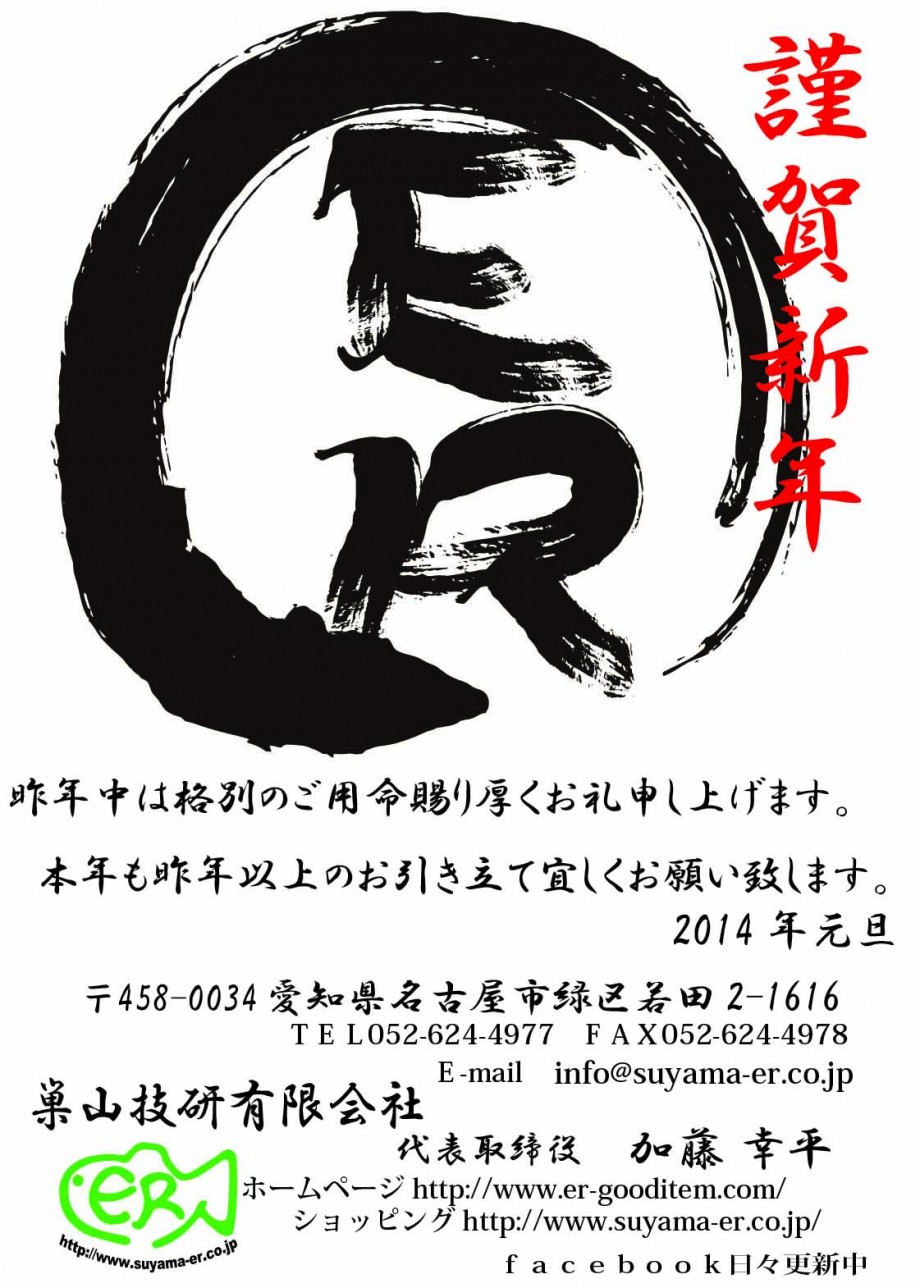 謹賀新年
E
R
昨年中は格別のご用命賜り厚くお礼申し上げます。
本年も昨年以上のお引き立て宜しくお願い致します。
2014 年元旦
〒458-0034 愛知県名古屋市緑区若田 2-1616
ＴＥＬ052-624-4977　ＦＡＸ052-624-4978
E-mail　info@suyama-er.co.jp
巣山技研有限会社
代表取締役　加藤 幸平
ER
http://www.suyama-er.co.jp
ホームページ http://www.er-gooditem.com/
ショッピング http://www.suyama-er.co.jp/
ｆａｃｅｂｏｏｋ日々更新中